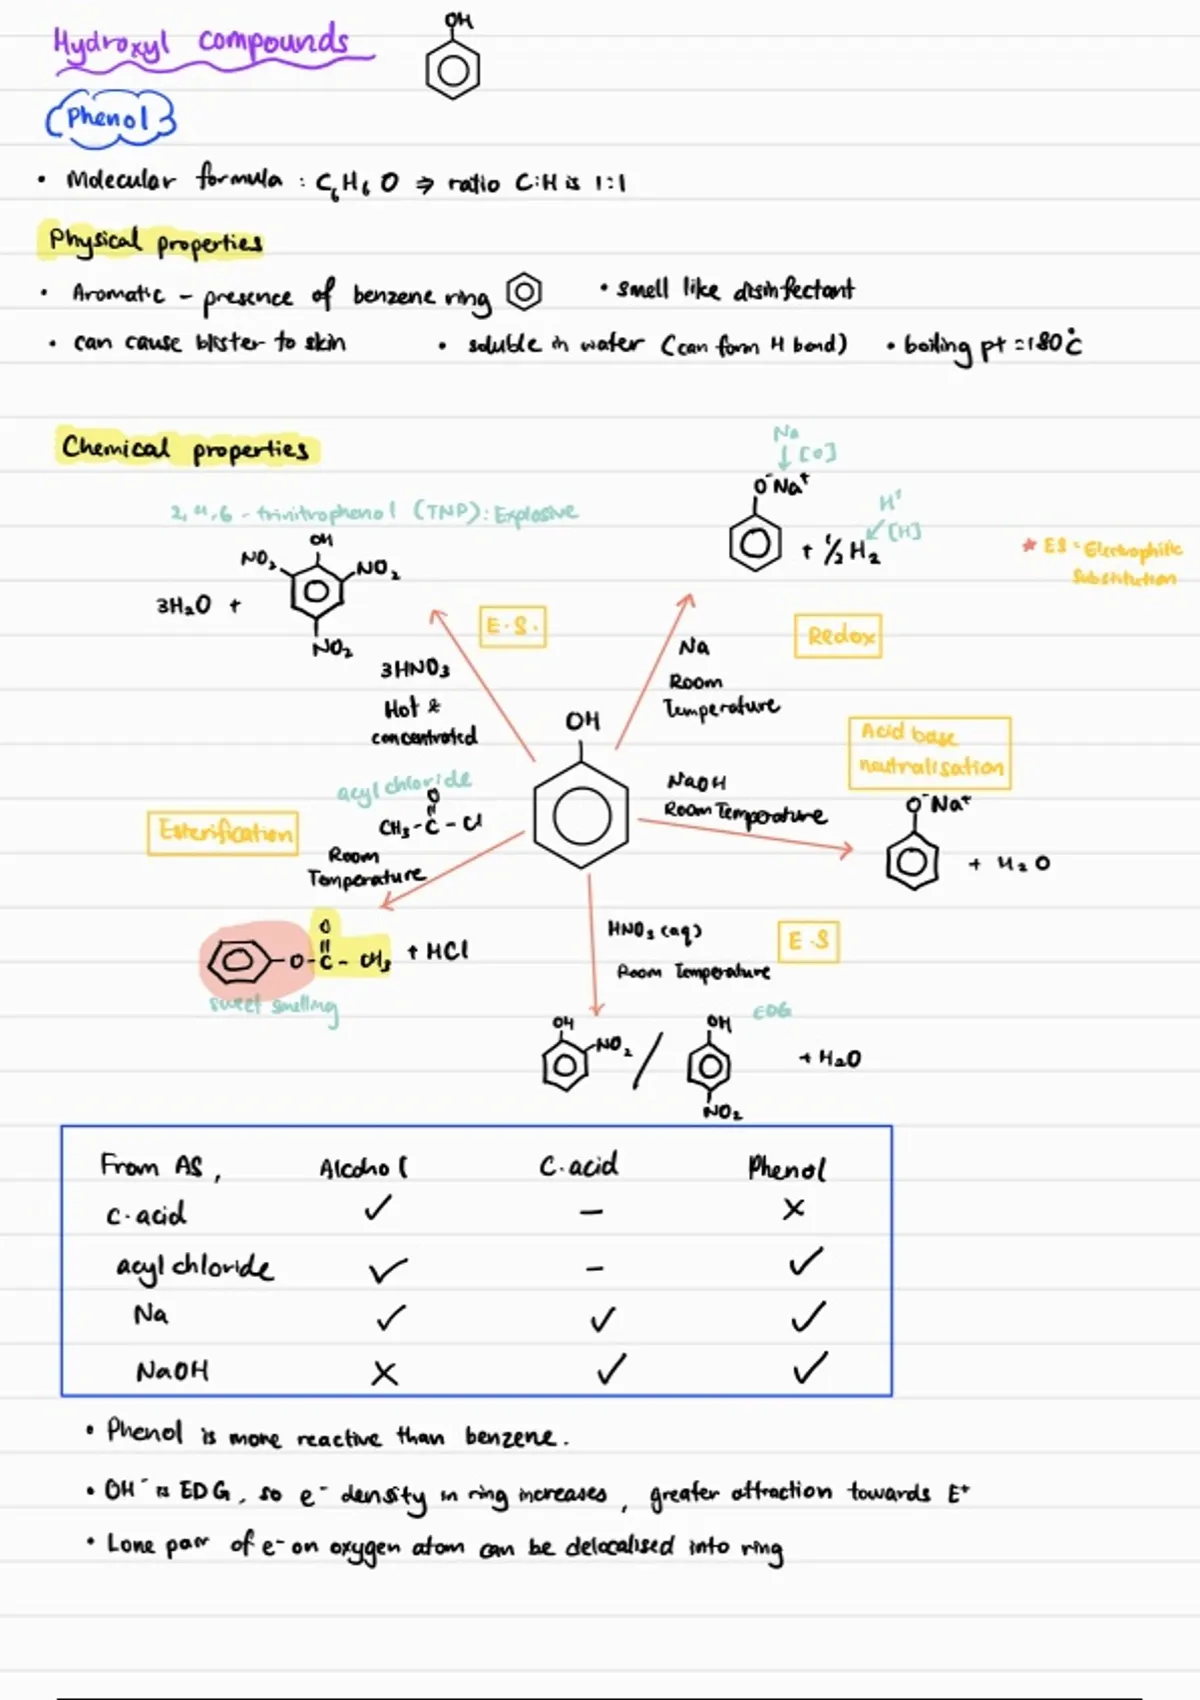 Hydroxyl compounds
OH
Phenol
• Molecular formula : C₆H₆O ⇒ ratio C:H is 1:1
Physical properties
• Aromatic - presence of benzene ring • smell like disinfectant
• can cause blister to skin • soluble in water (can form H bond) • boiling pt = 180°C
Chemical properties
Na
↓ [O]
2,4,6 - trinitrophenol (TNP): Explosive
O⁻Na⁺
H⁺
[H]
+ ½ H₂
* ES = Electrophilic
Substitution
OH
NO₂ NO₂
3H₂O +
NO₂
E.S.
3HNO₃
Hot &
concentrated
Na
Room
Temperature
Redox
OH
Acid base
neutralisation
NaOH
Room Temperature
O⁻Na⁺
+ H₂O
acyl chloride
O
CH₃-C-Cl
Esterification
Room
Temperature
O
-O-C-CH₃ + HCl
sweet smelling
HNO₃ (aq)
Room Temperature
E.S
OH
NO₂ /
OH
EDG
NO₂
+ H₂O
From AS, Alcohol C.acid Phenol
C.acid ✓ – ×
acyl chloride ✓ – ✓
Na ✓ ✓ ✓
NaOH × ✓ ✓
• Phenol is more reactive than benzene.
• OH⁻ is EDG, so e⁻ density in ring increases, greater attraction towards E⁺
• Lone pair of e⁻ on oxygen atom can be delocalised into ring